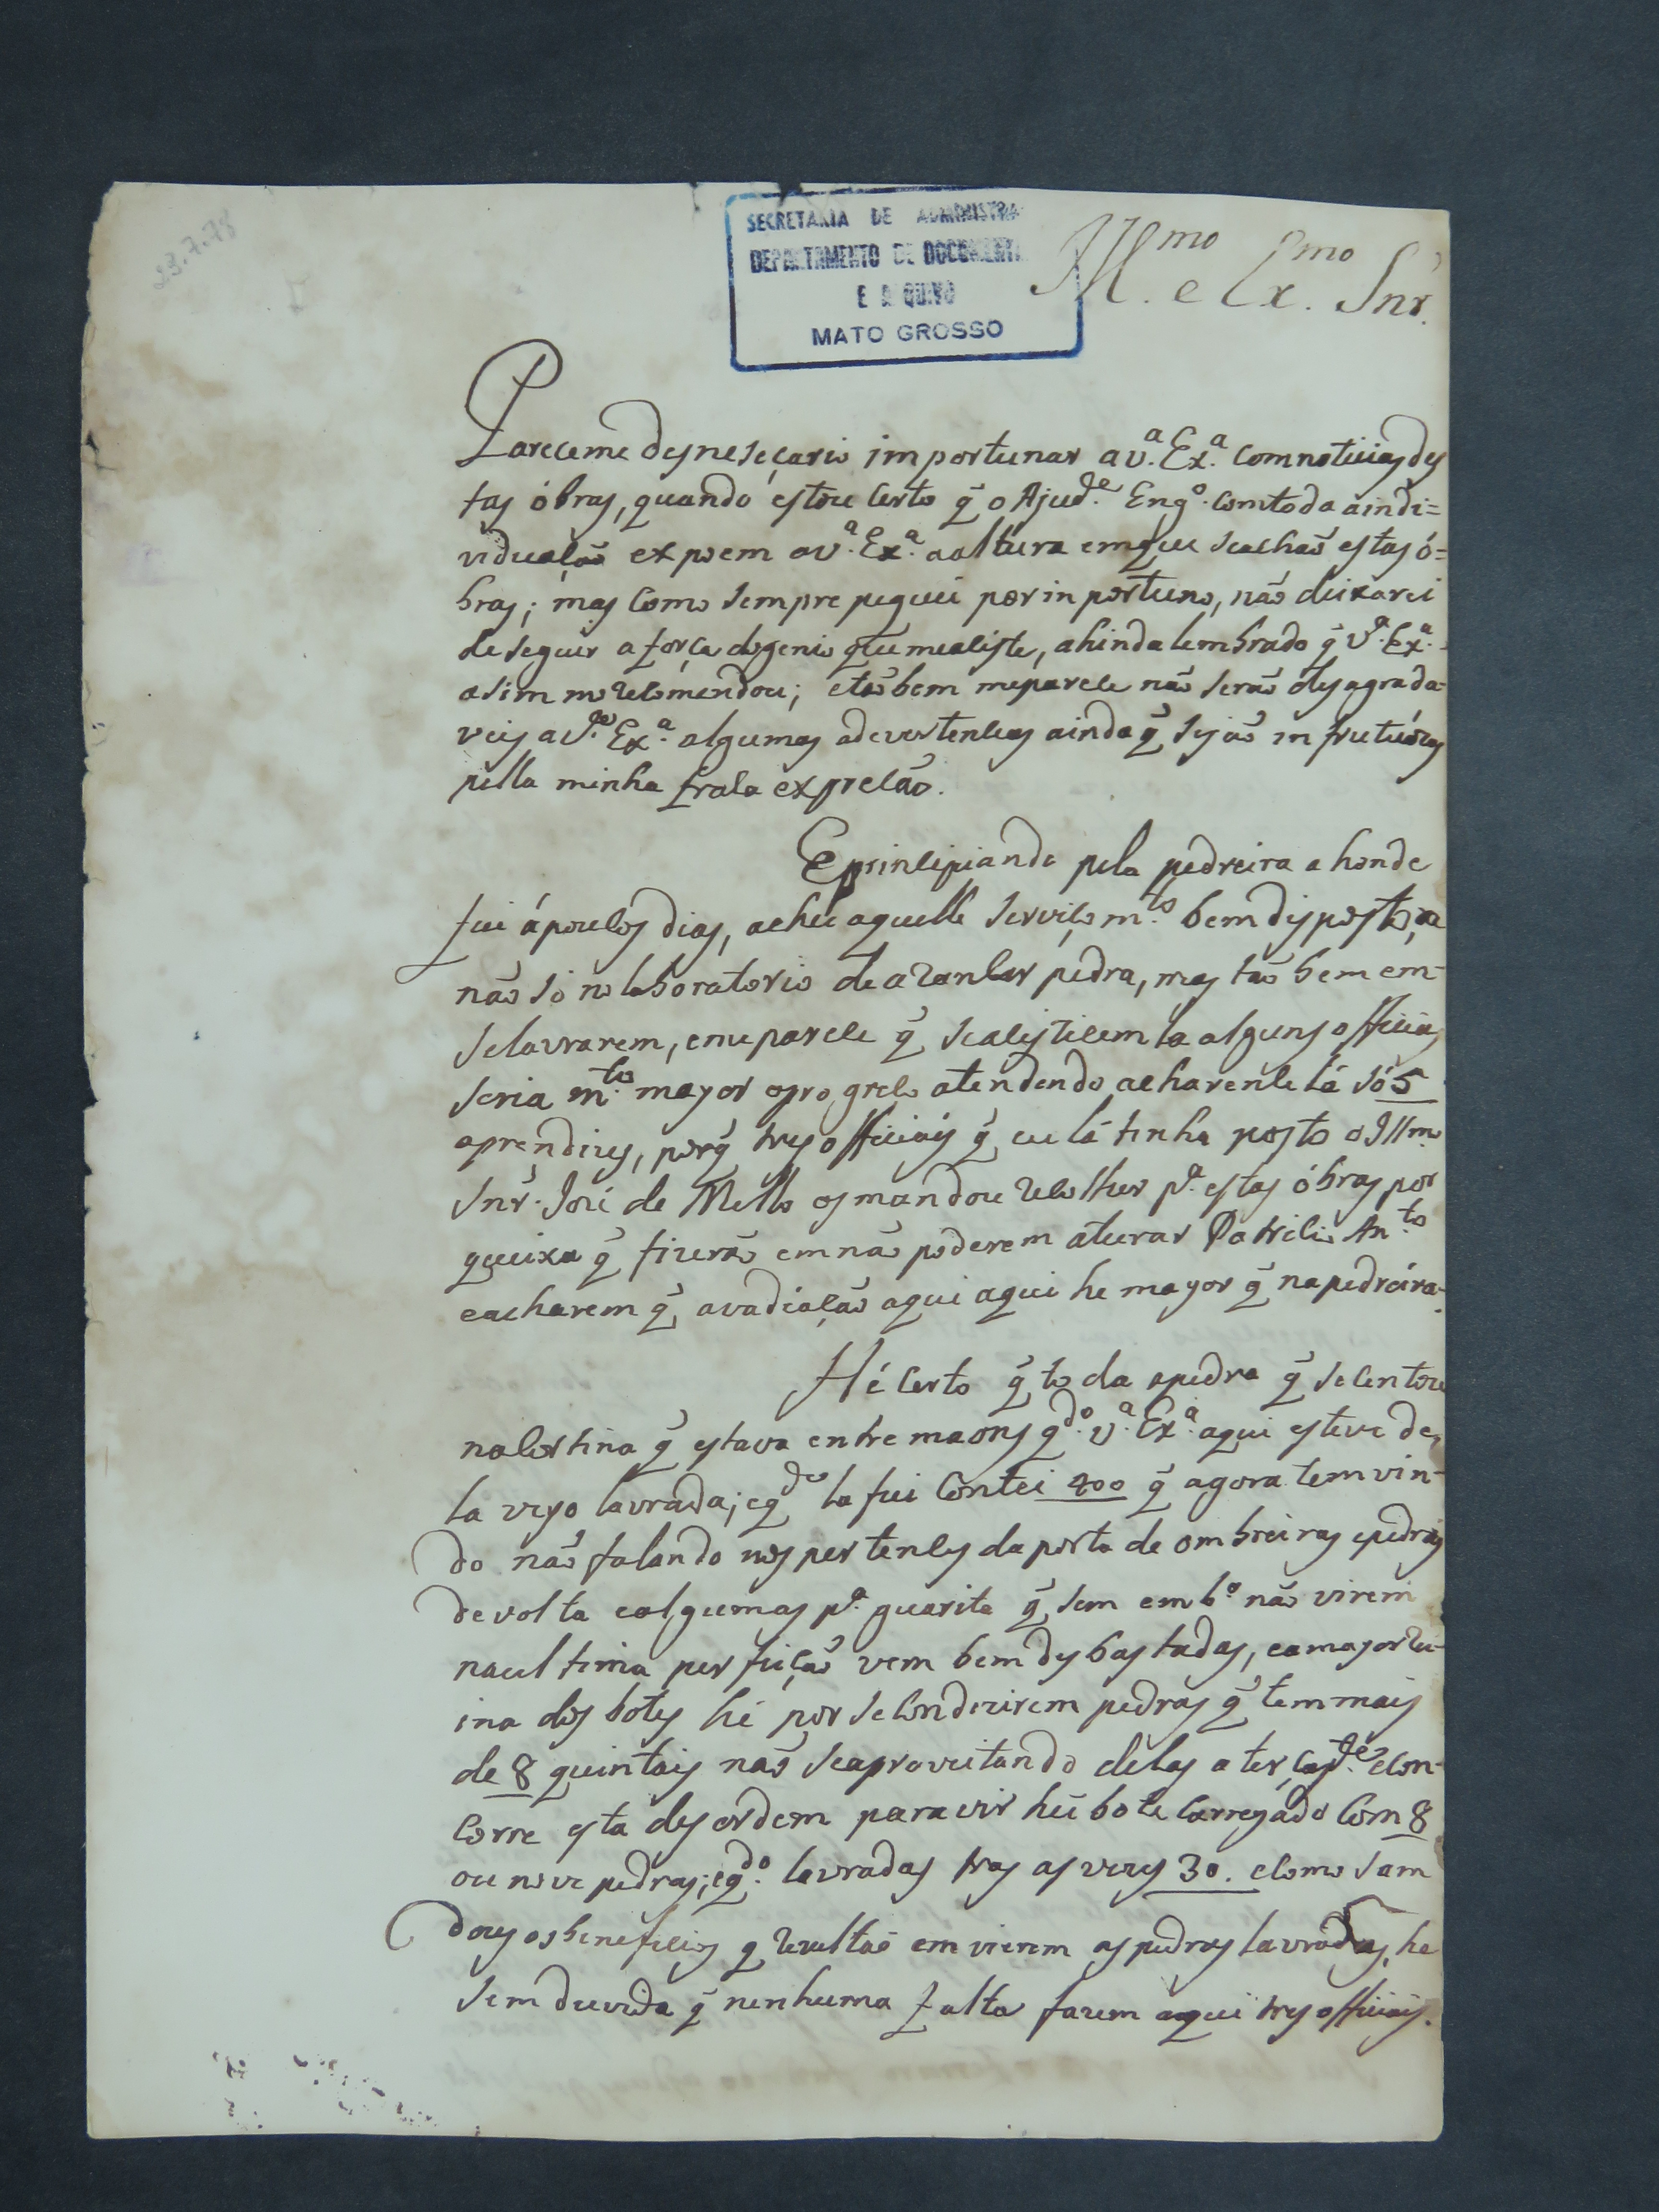 23.7.78
SECRETARIA DE ADMINISTRA
DEPARTAMENTO DE DOCUMENT
E A QUIVO
MATO GROSSO
Ill.mo e Ex.mo Snr.
Pareceme desneseçario importunar a v.ª Ex.ª com noticias des
tas óbras, quando estou certo q̃ o Ajud.e Eng.o com toda a indi=
viduaçaõ expoem a v.ª Ex.ª a altura em que se achaõ estas ó=
bras; mas como sempre peguei por inportuno, naõ deixarei
de seguir a força do genio que me asiste, ahinda lembrado q̃ V.ª Ex.ª
asim mo recomendou; e taõbem me parece naõ seraõ desagrada
veis a V.ª Ex.ª algumas adevertencias ainda q̃ sejaõ infrutuózas
pella minha fraca expreçaõ.
E principiando pela pedreira ahonde
fui á poucos dias, achei aquelle serviço m.to bem disposto,
naõ só no laboratorio de arancar pedra, mas taõ bem em
se lavrarem, e me parece q̃ se asisticem la alguns officiais
seria m.to mayor o progreço atendendo acharence lá só 5
aprendizes, porq̃ tres officiais q̃ eu lá tinha posto o Illm.o
Snr. José de Mello os mandou recolher p.ª estas óbras por
queixa q̃ fizeraõ em naõ poderem aturar Patricio An.to
e acharem q̃ a vadiaçaõ aqui aqui he mayor q̃ na pedreira.
Hé certo q̃ toda a pedra q̃ se centou
na cortina q̃ estava entre maons q.do v.ª Ex.ª aqui esteve de
la veyo lavrada; e q.do la fui contei 400 q̃ agora tem vin-
do naõ falando nos pertences da porta de ombreiras e pedras
de volta e algumas p.ª guarita q̃ sem emb.o naõ virem
na ultima perfeiçaõ vem bem desbastadas, e a mayor ru-
ina dos botes hé por se conduzirem pedras q̃ tem mais
de 8 quintais naõ se aproveitando delas a terça p.te e con-
corre esta desordem para vir hũ bote carregado com 8
ou nove pedras; e q.do lavradas tras as vezes 30. e como sam
dous os beneficios q̃ rezultaõ em vierem as pedras lavradas, he
sem duvida q̃ nenhuma falta fazem aqui tres officiais.